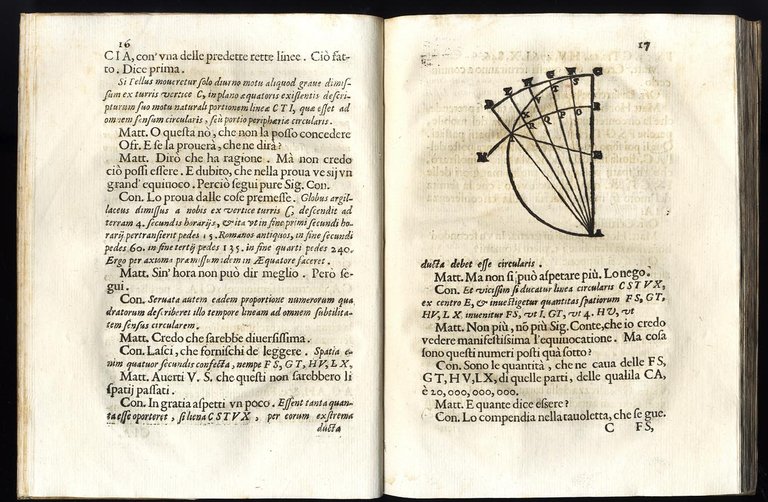 16
CIA, con' vna delle predette rette linee. Ciò fat-
to. Dice prima.
Si Tellus moueretur solo diurno motu aliquod graue dimis-
sum ex turris vertice C, in plano æquatoris existentis descri-
pturum suo motu naturali portionem lineæ CTI, quæ esset ad
omnem sensum circularis, seù portio peripheriæ circularis.
Matt. O questa nò, che non la posso concedere
Ofr. E se la prouerà, che ne dirà?
Matt. Dirò che hà ragione. Mà non credo
ciò possi essere. E dubito, che nella proua ve sij vn
grand' equiuoco. Perciò segui pure Sig. Con.
Con. Lo proua dalle cose premesse. Globus argil-
laceus dimissus a nobis ex vertice turris C, descendit ad
terram 4. secundis horarijs, & ita vt in fine primi secundi ho-
rarij pertransierit pedes 15. Romanos antiquos, in fine secundi
pedes 60. in fine tertij pedes 135. in fine quarti pedes 240.
Ergo per axioma præmissum idem in Æquatore faceret.
Matt. Sin' hora non può dir meglio. Però se-
gui.
Con. Seruata autem eadem proportione numerorum qua
dratorum describeret illo tempore lineam ad omnem subtilita-
tem sensus circularem.
Matt. Credo che sarebbe diuersissima.
Con. Lasci, che fornischi de leggere. Spatia e-
nim quatuor secundis confecta, nempe FS, GT, HV, LX,
Matt. Auerti V. S. che questi non sarebbero li
spatij passati.
Con. In gratia aspetti vn poco. Essent tanta quan-
ta esse oporteret, si linea CSTVX, per eorum extrema
ducta
17
D
L
H
G
F
C
S
T
V
X
B
O
P
Q
R
M
I
E
A
ducta debet esse circularis.
Matt. Ma non si può aspetare più. Lo nego.
Con. Et vicissim si ducatur linea circularis CSTVX,
ex centro E, & inuestigetur quantitas spatiorum FS, GT,
HV, LX. inuenitur FS, vt I. GT, vt 4. HV, vt
Matt. Non più, nò più Sig. Conte, che io credo
vedere manifestissima l'equiuocatione. Ma cosa
sono questi numeri posti quà sotto?
Con. Sono le quantità, che ne caua delle FS,
GT, HV, LX, di quelle parti, delle quali la CA,
è 20, 000, 000, 000.
Matt. E quante dice essere?
Con. Lo compendia nella tauoletta, che se gue.
C FS,